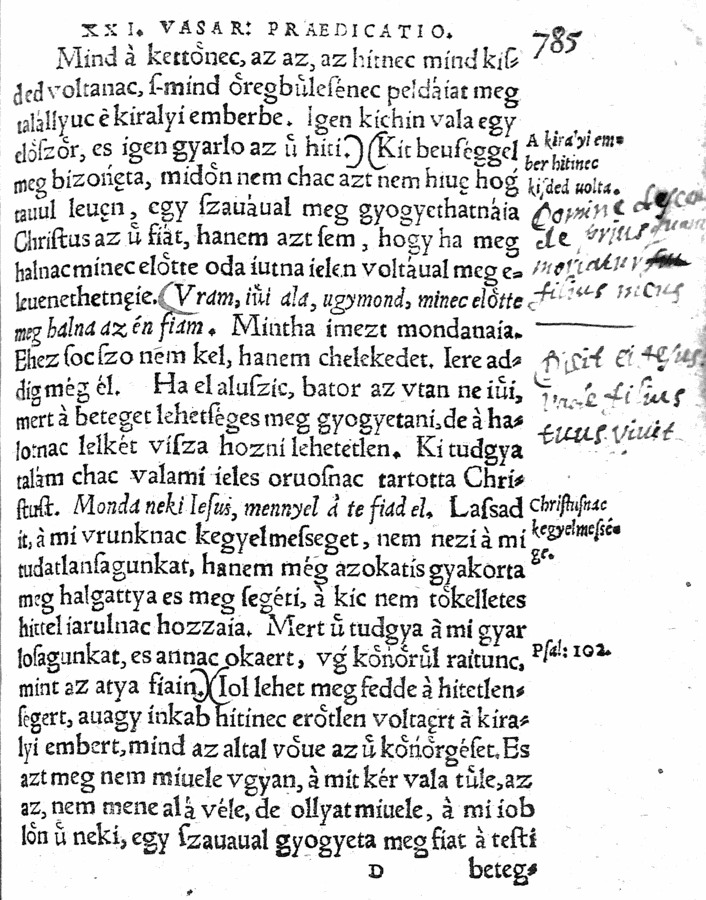 XXI. VASAR: PRAEDICATIO.
785
Mind à kettőnec, az az, az hitnec mind kiſ-
ded voltanac, ſ-mind ọ̈regbủleſénec peldáiat meg
talállyuc è kiralyi emberbe. Igen kichin vala egy
elọ̈ſzọ̈r, es igen gyarlo az ủ hiti.) (Kit beuſéggel
meg bizońęta, midọ̈n nem chac azt nem hiuę hoǵ
tauul leuęn, egy ſzauáual meg gyogyethatnáia
Chriſtus az ủ fiát, hanem azt ſem, hogy ha meg
halnac minec elọ̈tte oda iutna ielen voltáual meg e-
leuenethetnęie. (Vram, iủi ala, ugymond, minec elọ̈tte
meg halna az én fiam. Mintha imezt mondanaía.
Ehez ſoc ſzo nem kel, hanem chelekedet. Iere ad-
dig még él. Ha el aluſzic, bator az vtan ne iủi,
mert à beteget lehetſéges meg gyogyetani, de à ha-
lotnac lelkét viſza hozni lehetetlen. Ki tudgya
talám chac valami ieles oruoſnac tartotta Chri-
ſtuſt. Monda neki Ieſus, mennyel à te fiad el. Laſsad
it, à mi vrunknac kegyelmeſseget, nem nezi à mi
tudatlanſagunkat, hanem még azokatis gyakorta
meg halgattya es meg ſegéti, à kic nem tọ̈kelletes
hittel iarulnac hozzaia. Mert ủ tudgya à mi gyar
loſagunkat, es annac okaert, vǵ kọ̈ńọ̈rủl raitunc,
mint az atya fiain.) (Iol lehet meg fedde à hitetlen-
ſegert, auagy inkab hitinec erọ̈tlen voltaęrt à kira-
lyi embert, mind az altal vọ̈ue az ủ kọ̈ńọ̈rgéſet. Es
azt meg nem miuele vgyan, à mit kér vala tủle, az
az, nem mene alá véle, de ollyat miuele, à mi iob
lọ̈n ủ neki, egy ſzauaual gyogyeta meg fiat à teſti
D beteg-
A kira'yi em-
ber hitinec
kiſded uolta.
Domine descen
de prius quam
moriatur
filius meus
Dixit ei Jesus:
Vade filius
tuus vivit
Chriſtuſnac
kegyelmeſsé-
ge.
Pſal: 102.